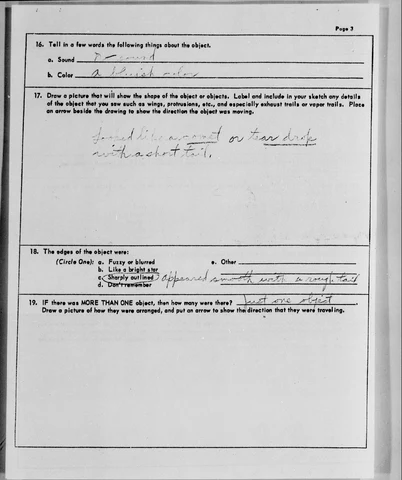 Page 3
16. Tell in a few words the following things about the object.
a. Sound no sound
b. Color a bluish color
17. Draw a picture that will show the shape of the object or objects. Label and include in your sketch any details
of the object that you saw such as wings, protrusions, etc., and especially exhaust trails or vapor trails. Place
an arrow beside the drawing to show the direction the object was moving.
looked like a comet or tear drop
with a short tail.
18. The edges of the object were:
(Circle One): a. Fuzzy or blurred e. Other
b. Like a bright star
c. Sharply outlined appeared smooth with a rough tail
d. Don't remember
19. IF there was MORE THAN ONE object, then how many were there? Just one object
Draw a picture of how they were arranged, and put an arrow to show the direction that they were traveling.